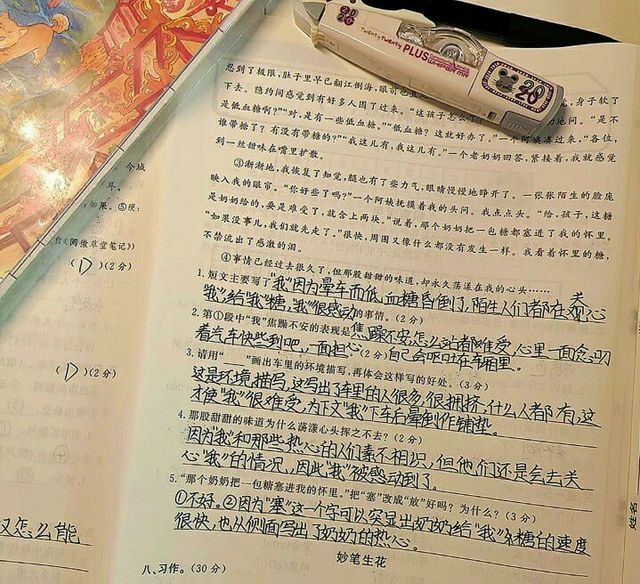 TwentyTwenty PLUS
20
忍到了极限，肚子里早已翻江倒海，眼前也
，身子软了
下去。隐约间感觉到有好多人围了过来。“这孩子怎么了
地问。“是不
是低血糖啊？”“对，是有一些低血糖。”“低血糖？这就好办了。”一个阿姨凑过来。“各位，
谁带糖了？有没有带糖的？”“我这儿有，我这儿有。”一个老奶奶回答，紧接着，我就感觉
到一丝甜味在嘴里扩散。
③渐渐地，我恢复了知觉，腿也有了些力气，眼睛慢慢地睁开了。一张张陌生的脸庞
映入我的眼帘。“你好些了吗？”一个阿姨抚摸着我的头问。我点点头。“给，孩子，这糖
是奶奶给的，要是难受了，就含上两块。”说着，那个奶奶把一包糖都塞进了我的怀里。
“如果没事儿，我们就先走了。”很快，周围又像什么都没有发生一样。我看着怀里的糖，
不禁流出了感激的泪。
④事情已经过去很久了，但那股甜甜的味道，却永久荡漾在我的心头……
1. 短文主要写了“我”因为晕车而低血糖昏倒了，陌生人们都在关心
“我”，给“我”糖，“我”很感动的事情。(2分)
2. 第①段中“我”焦躁不安的表现是焦躁不安，怎么站都难受，心里一面念叨
着汽车快些到吧，一面担心(2分)自己会呕吐在车厢里。
3. 请用“ ”画出车里的环境描写，再体会这样写的好处。(3分)
这是环境描写，这写出了车里的人很多，很拥挤，什么人都有，这
才使“我”很难受，为下文“我”下车后晕倒作铺垫。
4. 那股甜甜的味道为什么荡漾心头挥之不去？(2分)
因为“我”和那些热心的人们素不相识，但他们还是会去关
心“我”的情况，因此“我”被感动到了。
5. “那个奶奶把一包糖塞进我的怀里。”把“塞”改成“放”好吗？为什么？(3分)
①不好。②因为“塞”这一个字可以突显出奶奶给“我”糖的速度
很快，也从侧面写出了奶奶的热心。
妙笔生花
八、习作。(30分)
今城
如果，⑤绠：
《阅微草堂笔记》)
(D)(2分)
(D)(2分)
又怎么能
姓名